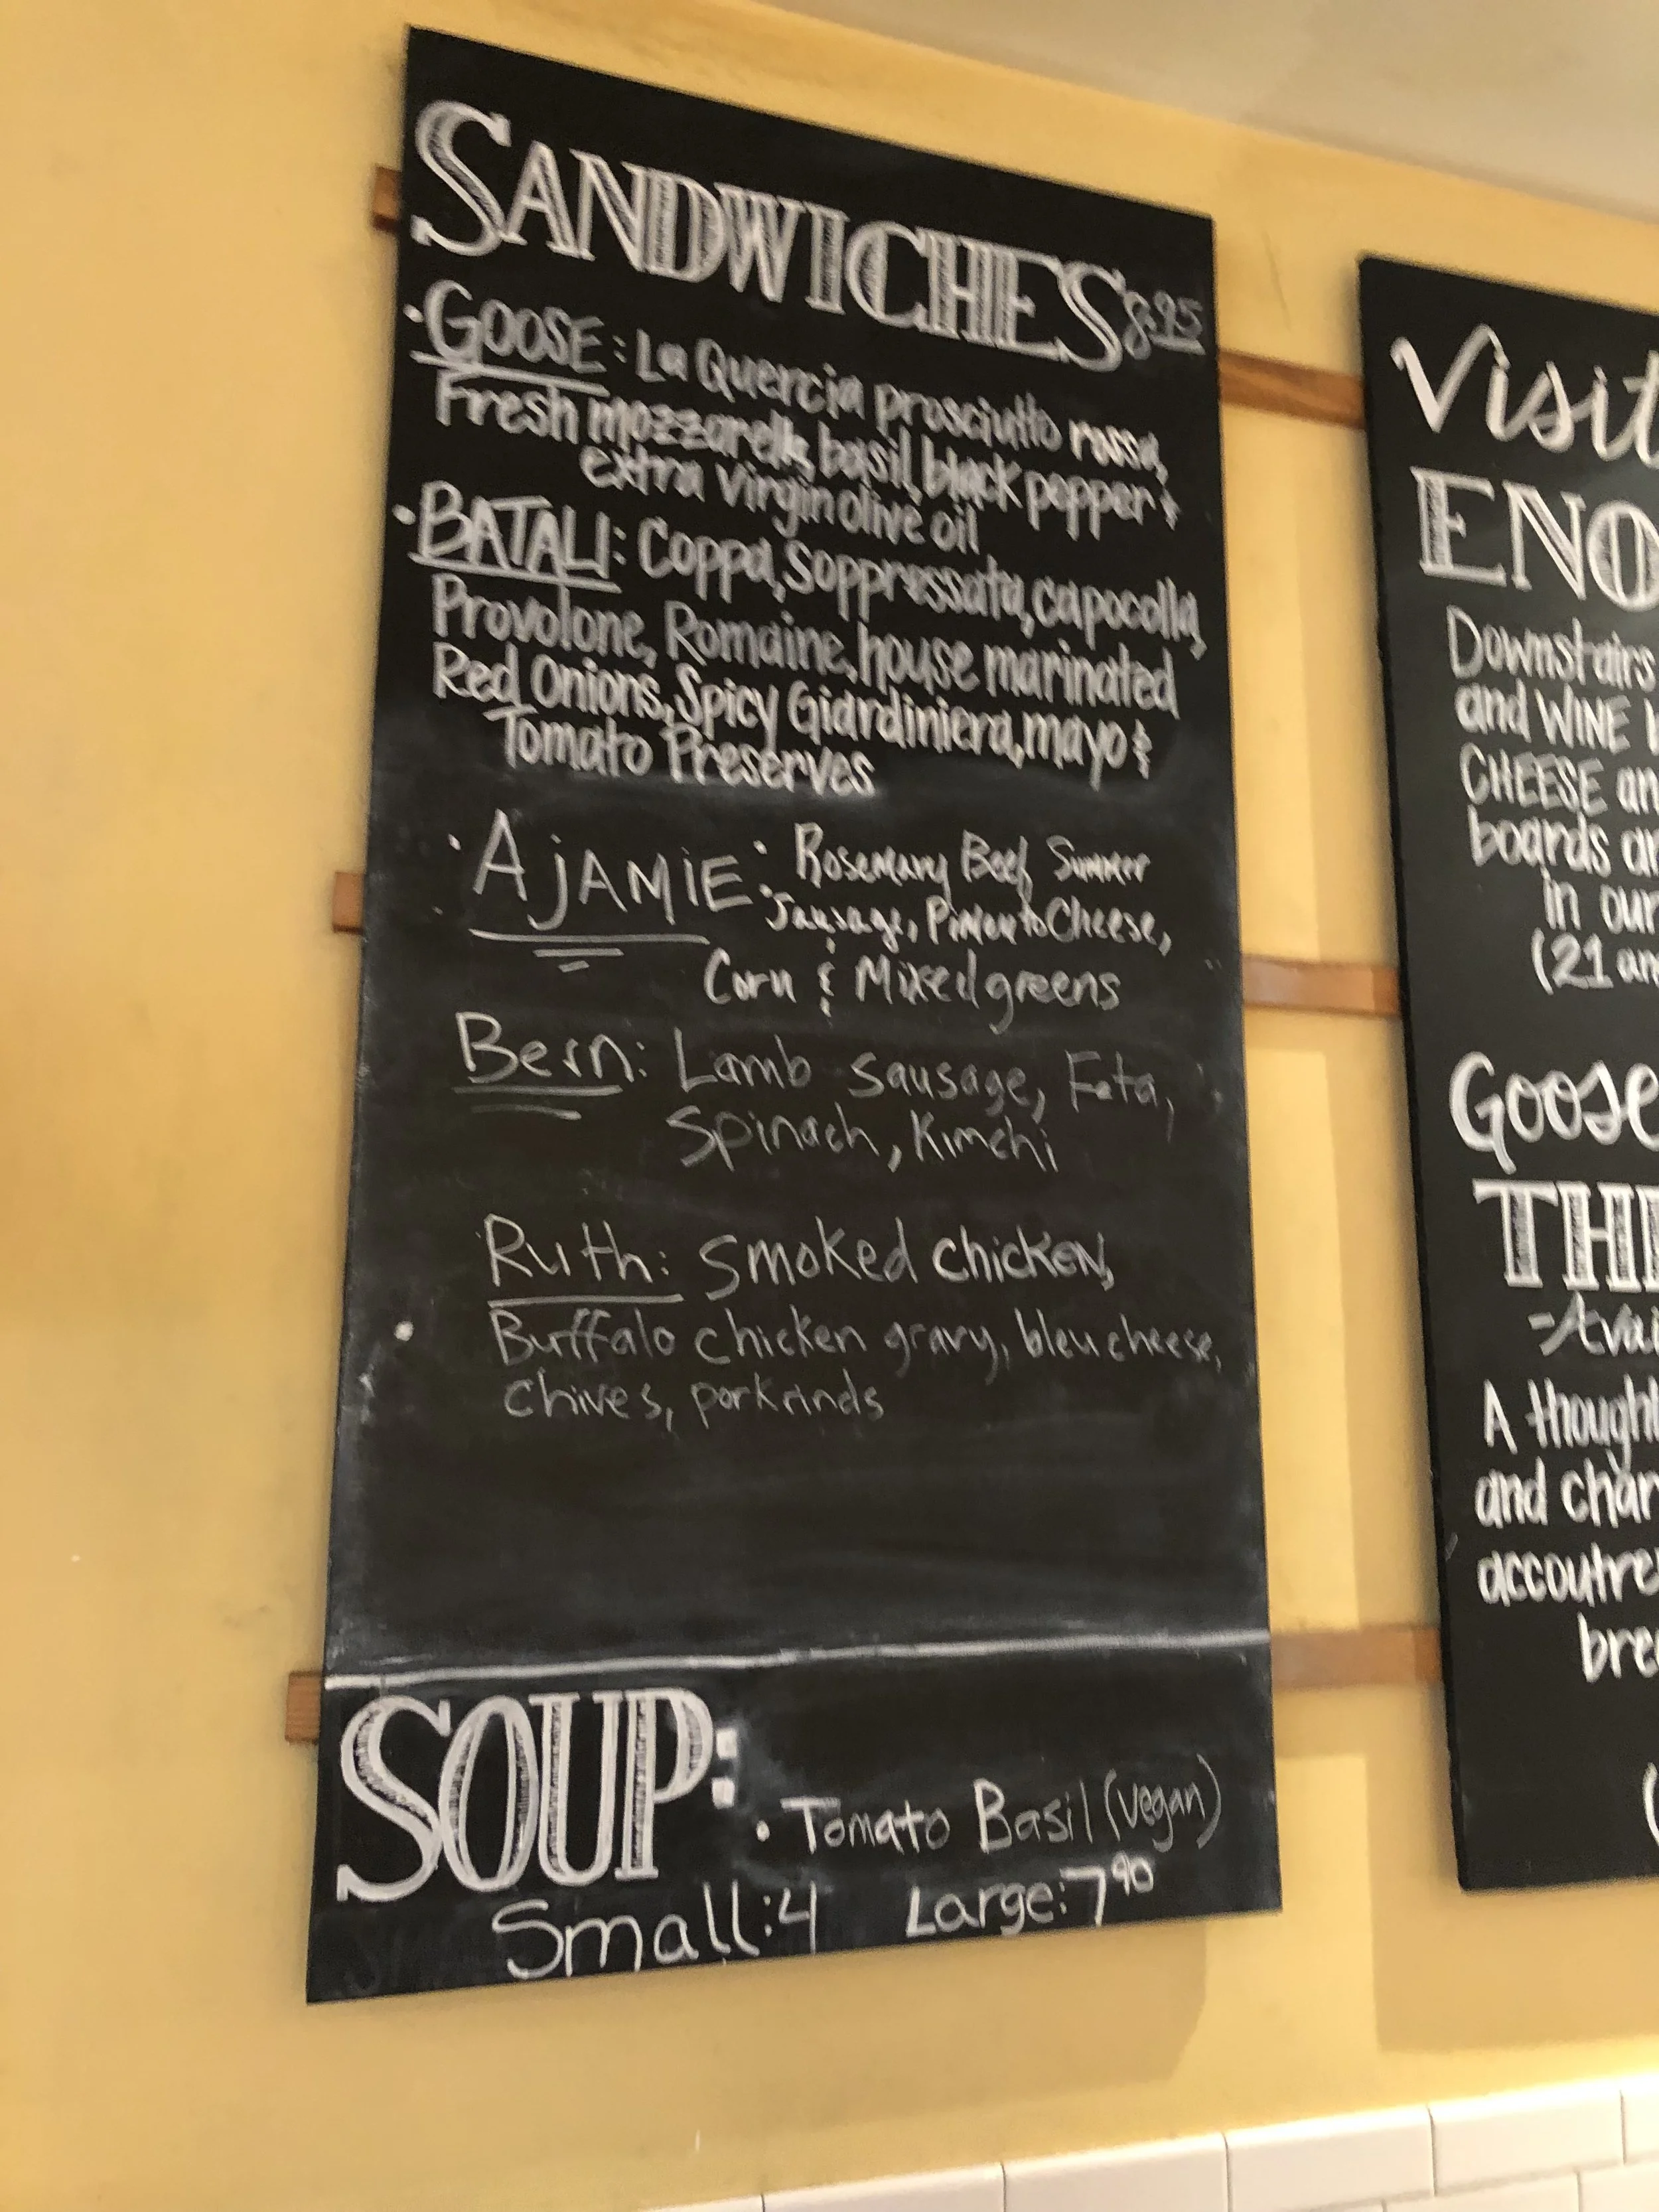 SANDWICHES 8.95
• GOOSE: La Quercia prosciutto rossa,
Fresh mozzarella, basil, black pepper &
extra virgin olive oil
• BATALI: Coppa, Soppressata, capocolla,
Provolone, Romaine, house marinated
Red Onions, Spicy Giardiniera, mayo &
Tomato Preserves
• AJAMIE: Rosemary Beef Summer
Sausage, Pimento Cheese,
Corn & Mixed greens
Bern: Lamb sausage, Feta,
Spinach, Kimchi
Ruth: Smoked chicken,
• Buffalo chicken gravy, bleu cheese,
Chives, porkrinds
SOUP:
• Tomato Basil (vegan)
Small: 4 Large: 7 90
Visit
ENO
Downstairs
and WINE
CHEESE an
boards ar
in our
(21 an
Goose
THE
-Avai
A though
and char
accoutre
brea
(